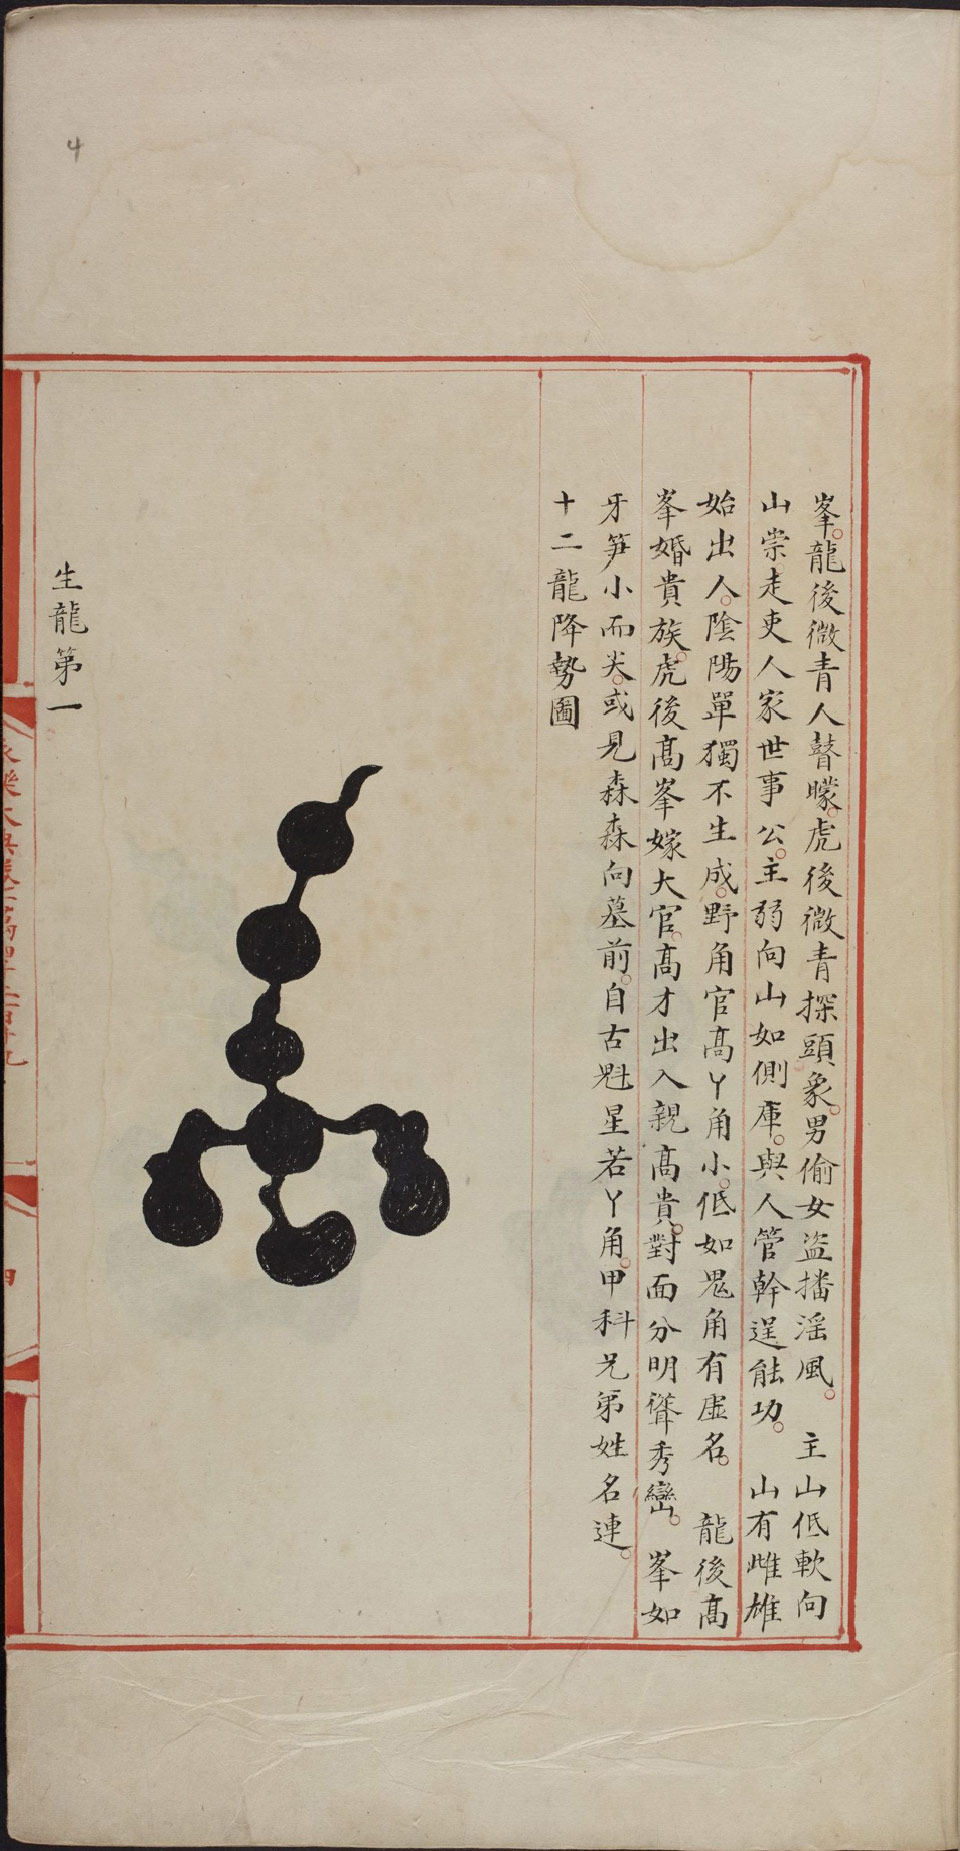 4
峯。龍後微青人瞽矇。虎後微青探頭象。男偷女盜播淫風。　主山低軟向
山崇。走吏人家世事公。主弱向山如側庫。與人管幹逞能功。　山有雌雄
始出人。陰陽單獨不生成。野角官高丫角小。低如鬼角有虛名。　龍後高
峯婚貴族。虎後高峯嫁大官。高才出入親高貴。對面分明聳秀巒。　峯如
牙笋小而尖。或見森森向墓前。自古魁星若丫角。甲科兄弟姓名連。
十二龍降勢圖
生龍第一
永樂大典卷一萬四千二百十九
四